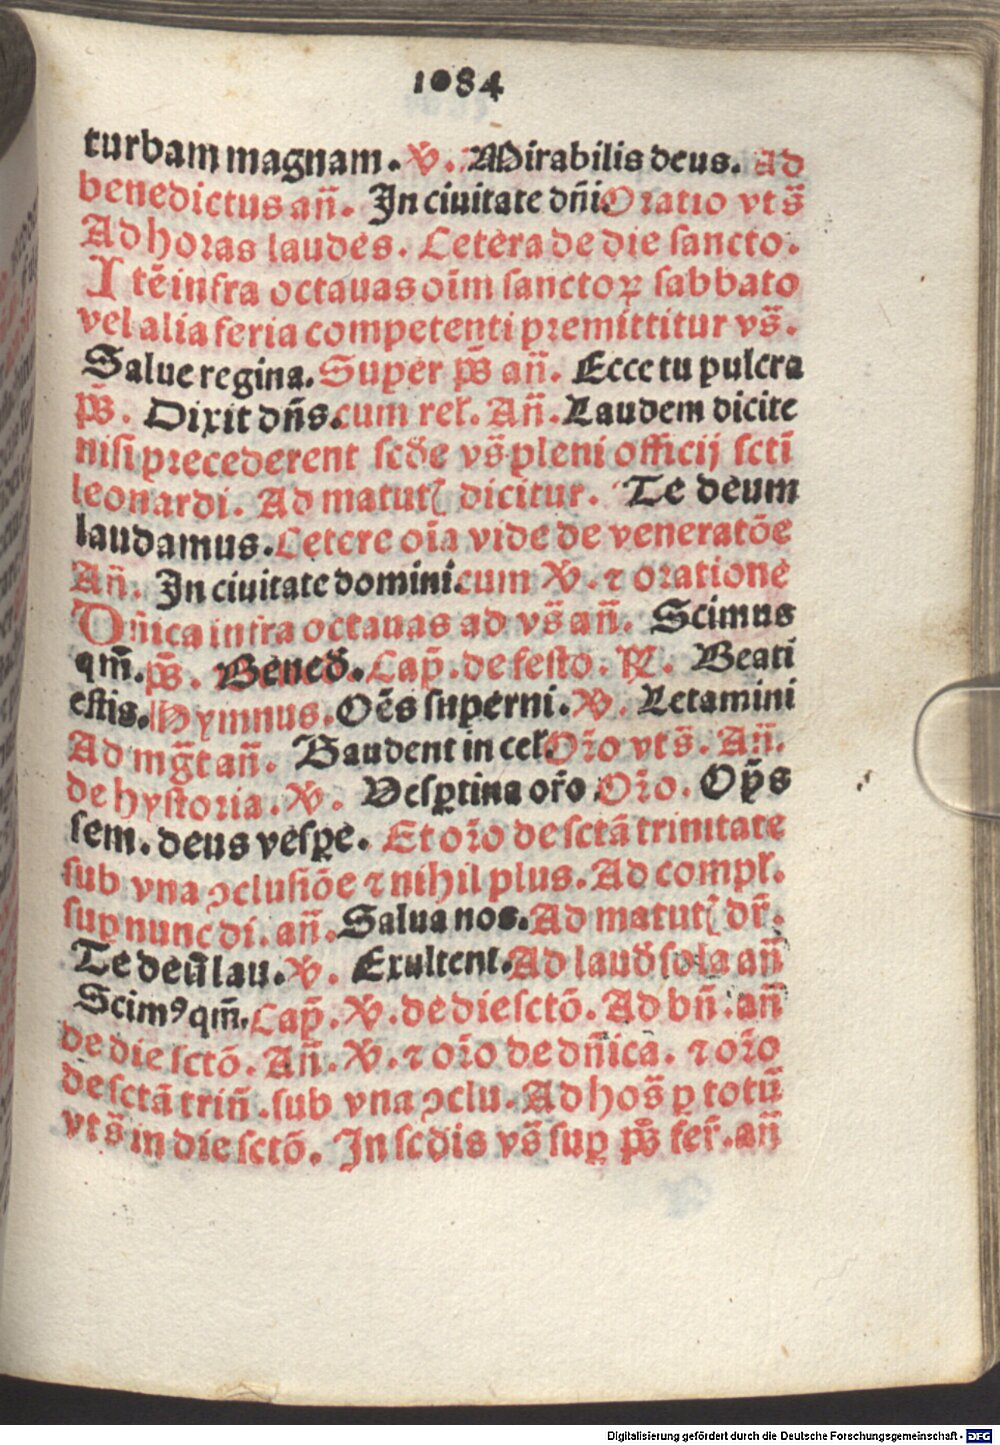 1084
turbam magnam. ℣. Mirabilis deus. Ad
benedictus añ. In ciuitate dñi. Oratio vts̄
Ad horas laudes. Cetera de die sancto.
Itē infra octauas oīm sanctoꝝ sabbato
vel alia feria competenti premittitur vs̄.
Salue regina. Super ps̄ añ. Ecce tu pulcra
ps̄. Dixit dñs. cum rel̄. Añ. Laudem dicite
nisi precederent scd̄e vs̄ pleni officij sctī
leonardi. Ad matut̄ dicitur. Te deum
laudamus. Cetere oīa vide de veneratōe
Añ. In ciuitate domini. cum ℣. ⁊ oratione
Dñica infra octauas ad vs̄ añ. Scimus
qm̄. ps̄. Bened̄. Cap̄. de festo. ℟. Beati
estis. Hymnus. Oēs superni. ℣. Letamini
Ad mḡt añ. Gaudent in cel̄. Or̄o vts̄. Añ.
de hystoria. ℣. Vesꝑtina or̄o. Or̄o. Op̄s
sem. deus vesꝑe. Et or̄o de sctā trinitate
sub vna ꝯclusiōe ⁊ nihil plus. Ad compl̄.
suꝑ nunc di. añ. Salua nos. Ad matut̄ dr̄.
Te deū lau. ℣. Exultent. Ad laud̄ sola añ
Scimꝰ qm̄. Cap̄. ℣. de die sctō. Ad bñ. añ
de die sctō. Añ. ℣. ⁊ or̄o de dñica. ⁊ or̄o
de sctā triñ. sub vna ꝯclu. Ad hos̄ ꝑ totū
vts̄ in die sctō. In scd̄is vs̄ suꝑ ps̄ fer̄. añ
Digitalisierung gefördert durch die Deutsche Forschungsgemeinschaft - DFG